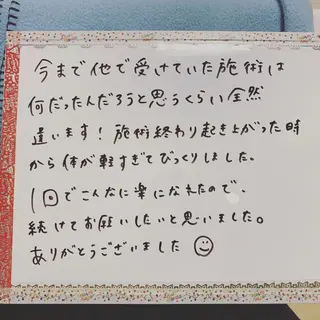 今まで他で受けていた施術は
何だったんだろうと思うくらい全然
違います！施術終わり起き上がった時
から体が軽すぎてびっくりしました。
1回でこんなに楽になれたので、
続けてお願いしたいと思いました。
ありがとうございました☺